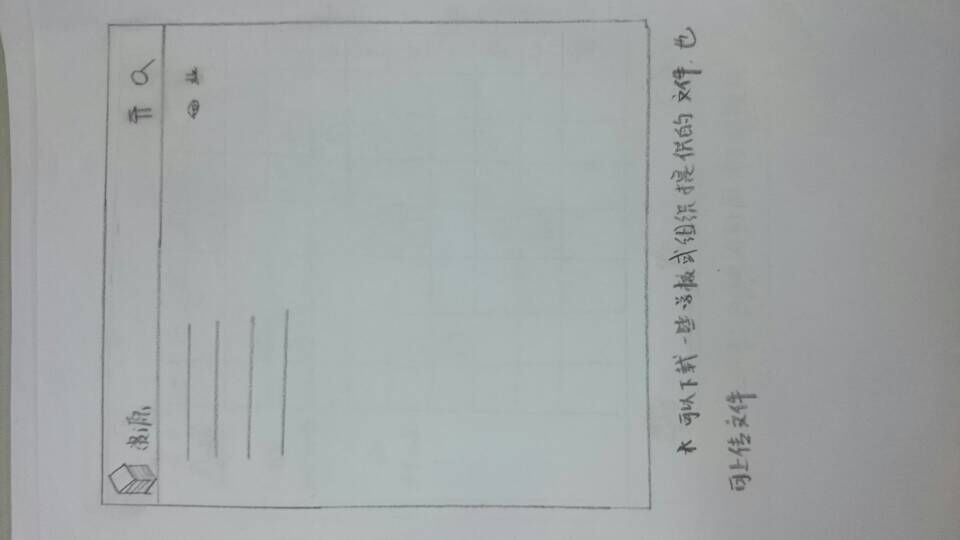 资源
* 可以下载一些学校或组织提供的文件.也
可上传文件